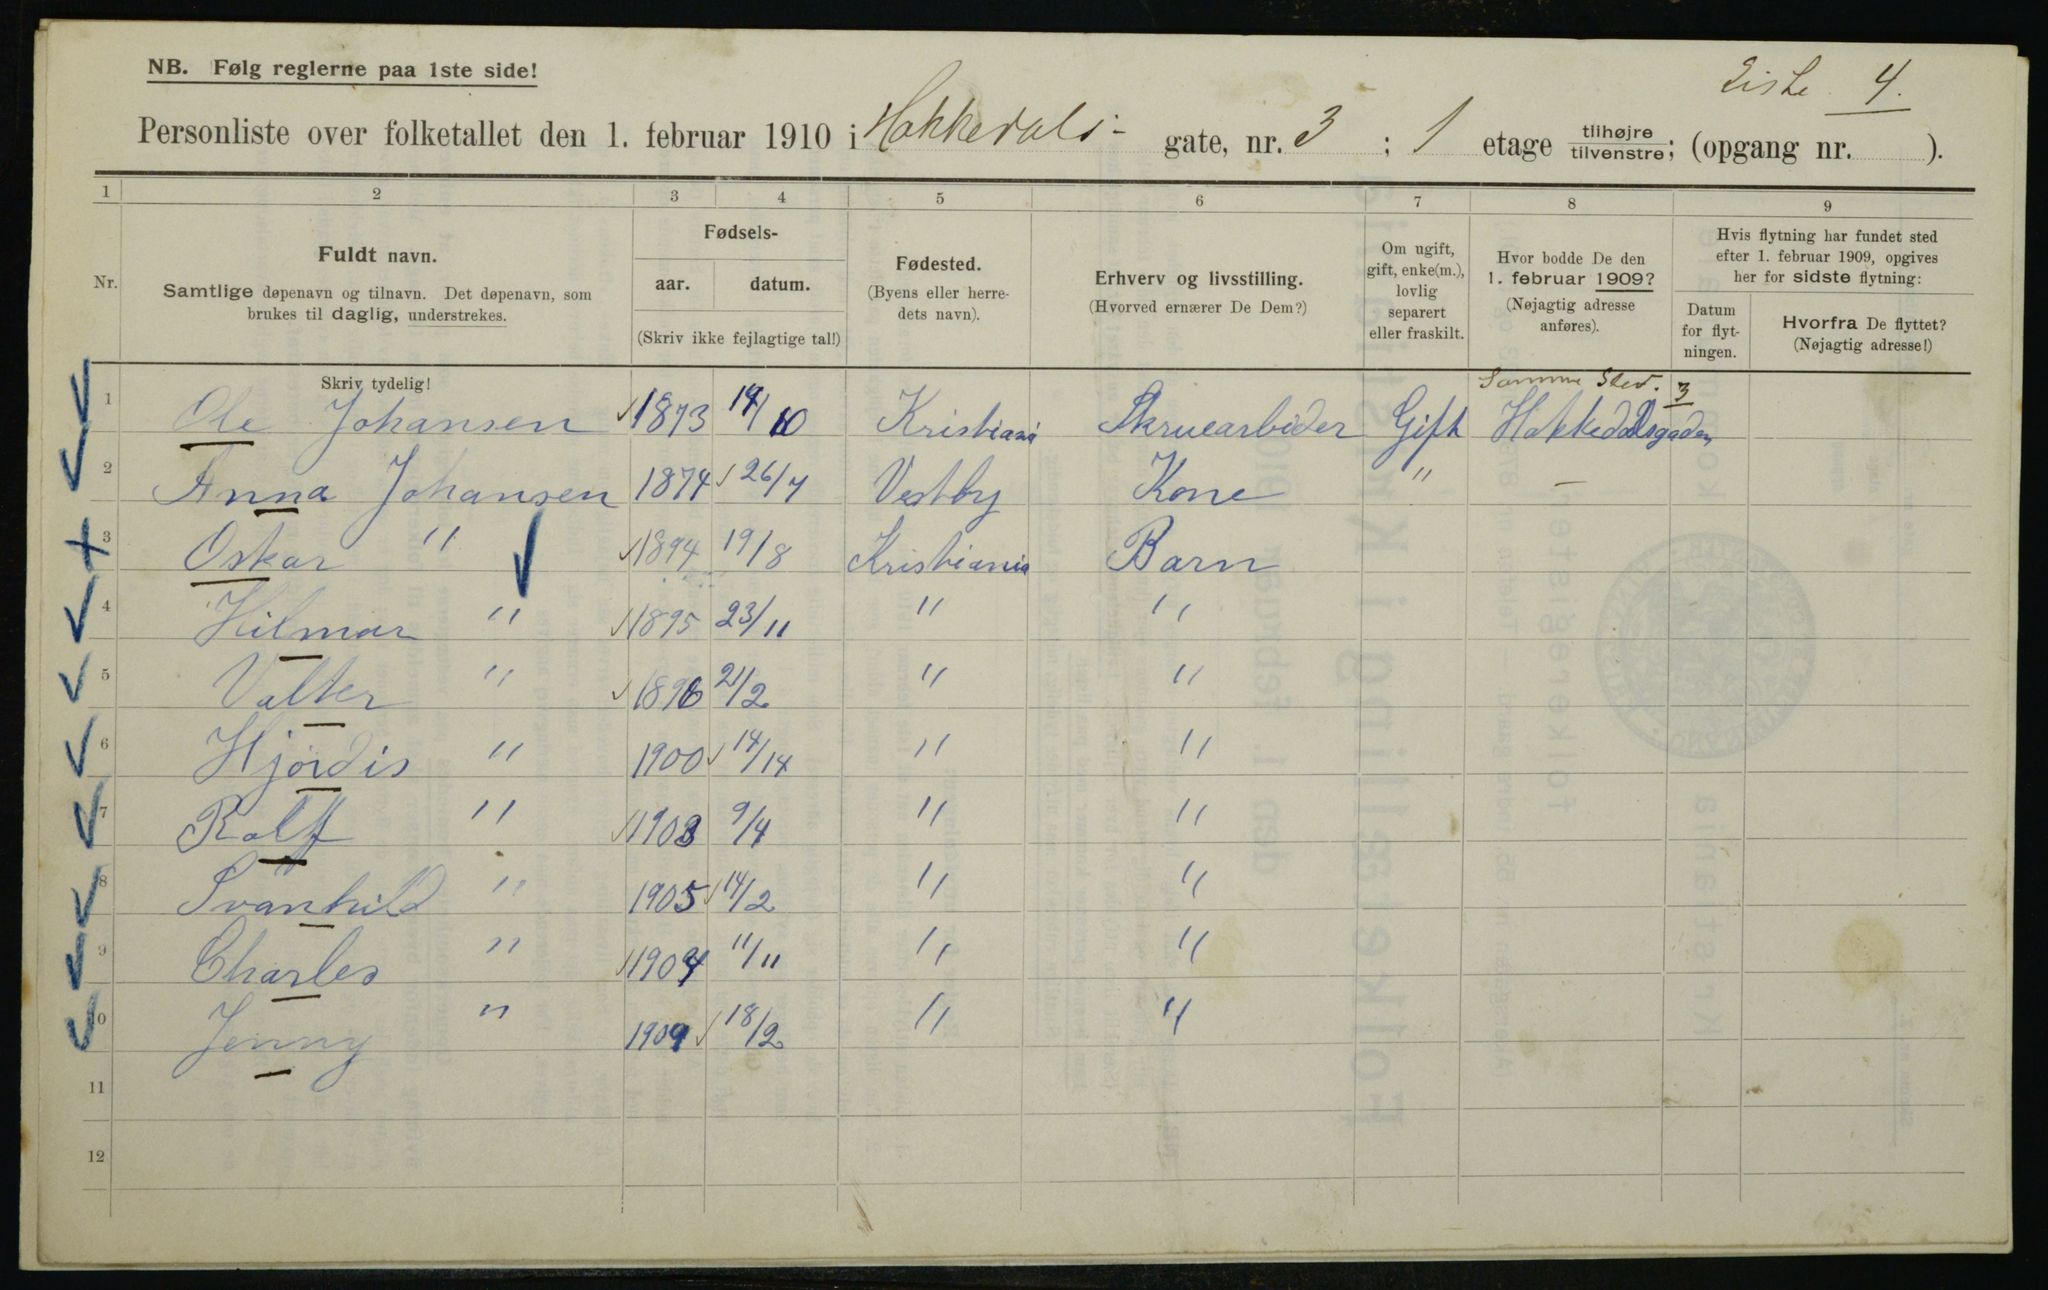 Liste 4.
NB. Følg reglerne paa 1ste side!
Personliste over folketallet den 1. februar 1910 i Hakkedals- gate, nr. 3 ; 1 etage tilhøjre tilvenstre; (opgang nr. ).
1 2 3 4 5 6 7 8 9
Nr.
Fuldt navn.
Samtlige døpenavn og tilnavn. Det døpenavn, som
brukes til daglig, understrekes.
Skriv tydelig!
Fødsels-
aar. datum.
(Skriv ikke fejlagtige tal!)
Fødested.
(Byens eller herre-
dets navn).
Erhverv og livsstilling.
(Hvorved ernærer De Dem?)
Om ugift,
gift, enke(m.),
lovlig
separert
eller fraskilt.
Hvor bodde De den
1. februar 1909?
(Nøjagtig adresse
anføres).
Hvis flytning har fundet sted
efter 1. februar 1909, opgives
her for sidste flytning:
Datum
for flyt-
ningen.
Hvorfra De flyttet?
(Nøjagtig adresse!)
Samme Sted. 3
1 Ole Johansen 1873 14/10 Kristiania Skruearbeider Gift Hakkedalsgaden
2 Anna Johansen 1874 26/7 Vestby Kone " –
3 Oskar " 1894 19/8 Kristiania Barn
4 Hilmar " 1895 23/11 " "
5 Valter " 1896 21/2 " "
6 Hjördis " 1900 14/14 " "
7 Rolf " 1903 9/4 " "
8 Svanhild " 1905 14/2 " "
9 Charles " 1907 11/11 " "
10 Jenny " 1909 18/2 " "
11
12